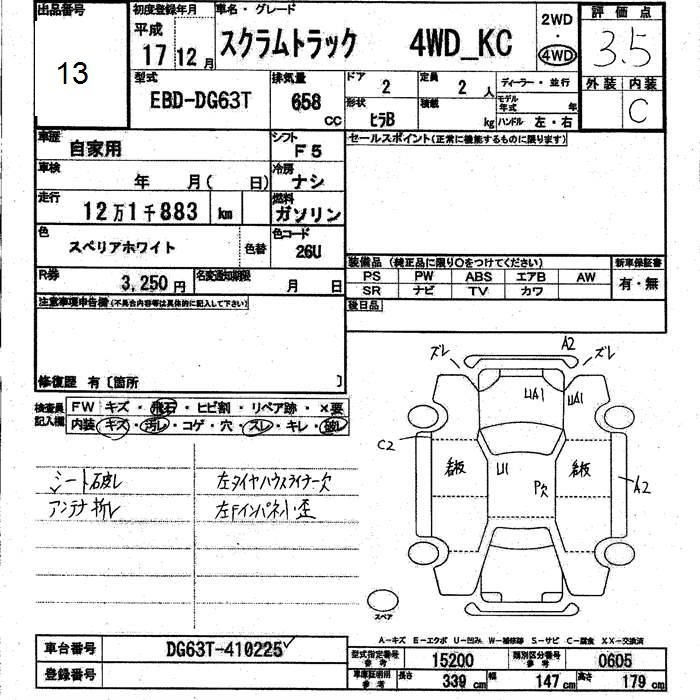 出品番号 初度登録年月 車名・グレード 2WD 評価点
平成 17 12月 スクラムトラック 4WD_KC ・ 4WD 3.5
13
型式 排気量 ドア 定員 ディーラー・並行 外装 内装
EBD-DG63T 658 CC 2 2 人 モデル年式 年 C
形状 積載
ヒラB kg ハンドル 左・右
車歴 自家用 シフト F5 セールスポイント(正常に機能するものに限ります)
車検 年 月( 日) 冷房 ナシ
走行 12万1千883 km 燃料 ガソリン
色 スペリアホワイト 色替 色コード 26U
装備品(純正品に限り○をつけてください) 新車保証書
R券 3,250円 名変通知期限 月 日 PS PW ABS エアB AW 有・無
SR ナビ TV カワ
注意事項申告欄(不具合内容等は具体的に記入して下さい) 後日品
修復歴 有〔箇所 〕
検査員記入欄 FW キズ・飛石・ヒビ割・リペア跡・×要
内装 キズ・汚れ・コゲ・穴・スレ・キレ・破レ
シート破レ 左タイヤハウスライナー欠
アンテナ折レ 左Fインパネ小歪
ズレ A2 ズレ
UA1 UA1
C2
U1 P欠 A2
スペア
A-キズ E-エクボ U-凹み W-補修跡 S-サビ C-腐食 XX-交換済
車台番号 DG63T-410225
型式指定番号 参考 15200 類別区分番号 参考 0605
登録番号 車庫証明用 参考 長さ 339 cm 幅 147 cm 高さ 179 cm